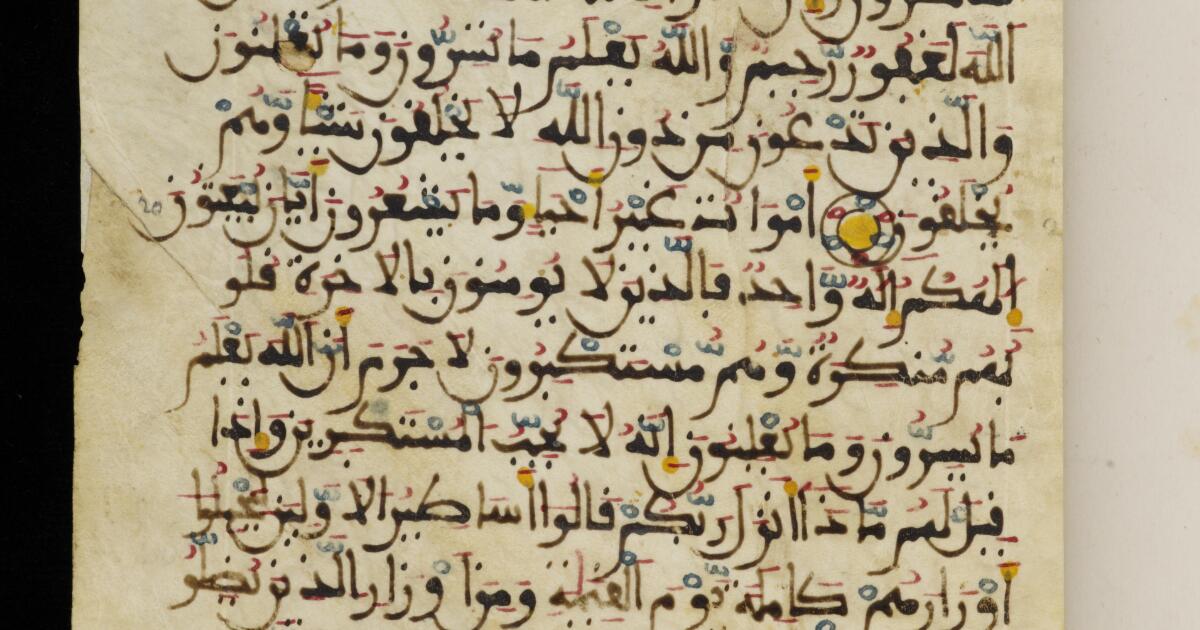 الله لغفور رحيم والله يعلم ما تسرون وما تعلنون
والذين تدعون من دون الله لا يخلقون شيا وهم
يخلقون اموات غير احيا وما يشعرون ايان يبعثون
20
الهكم اله واحد فالذين لا يومنون بالاخرة قلو
بهم منكرة وهم مستكبرون لا جرم ان الله يعلم
ما يسرون وما يعلنون انه لا يحب المستكبرين واذا
قيل لهم ماذا انزل ربكم قالوا اسطير الاولين ليحملوا
اوزارهم كاملة يوم القيمة ومن اوزار الذين يضلو